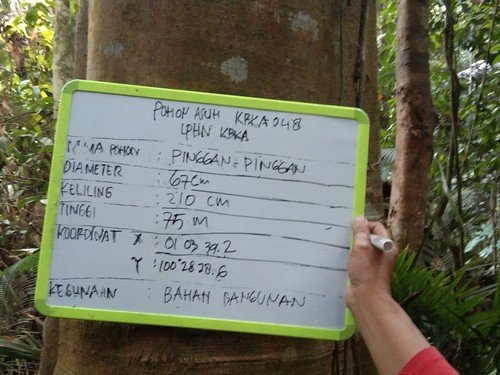 POHON ASUH KBKA 048
LPHN KBKA
NAMA POHON : PINGGAN-PINGGAN
DIAMETER : 67 cm
KELILING : 210 CM
TINGGI : 75 M
KOORDINAT X : 01 03 39.2
Y : 100°28 28.6
KEGUNAAN : BAHAN BANGUNAN